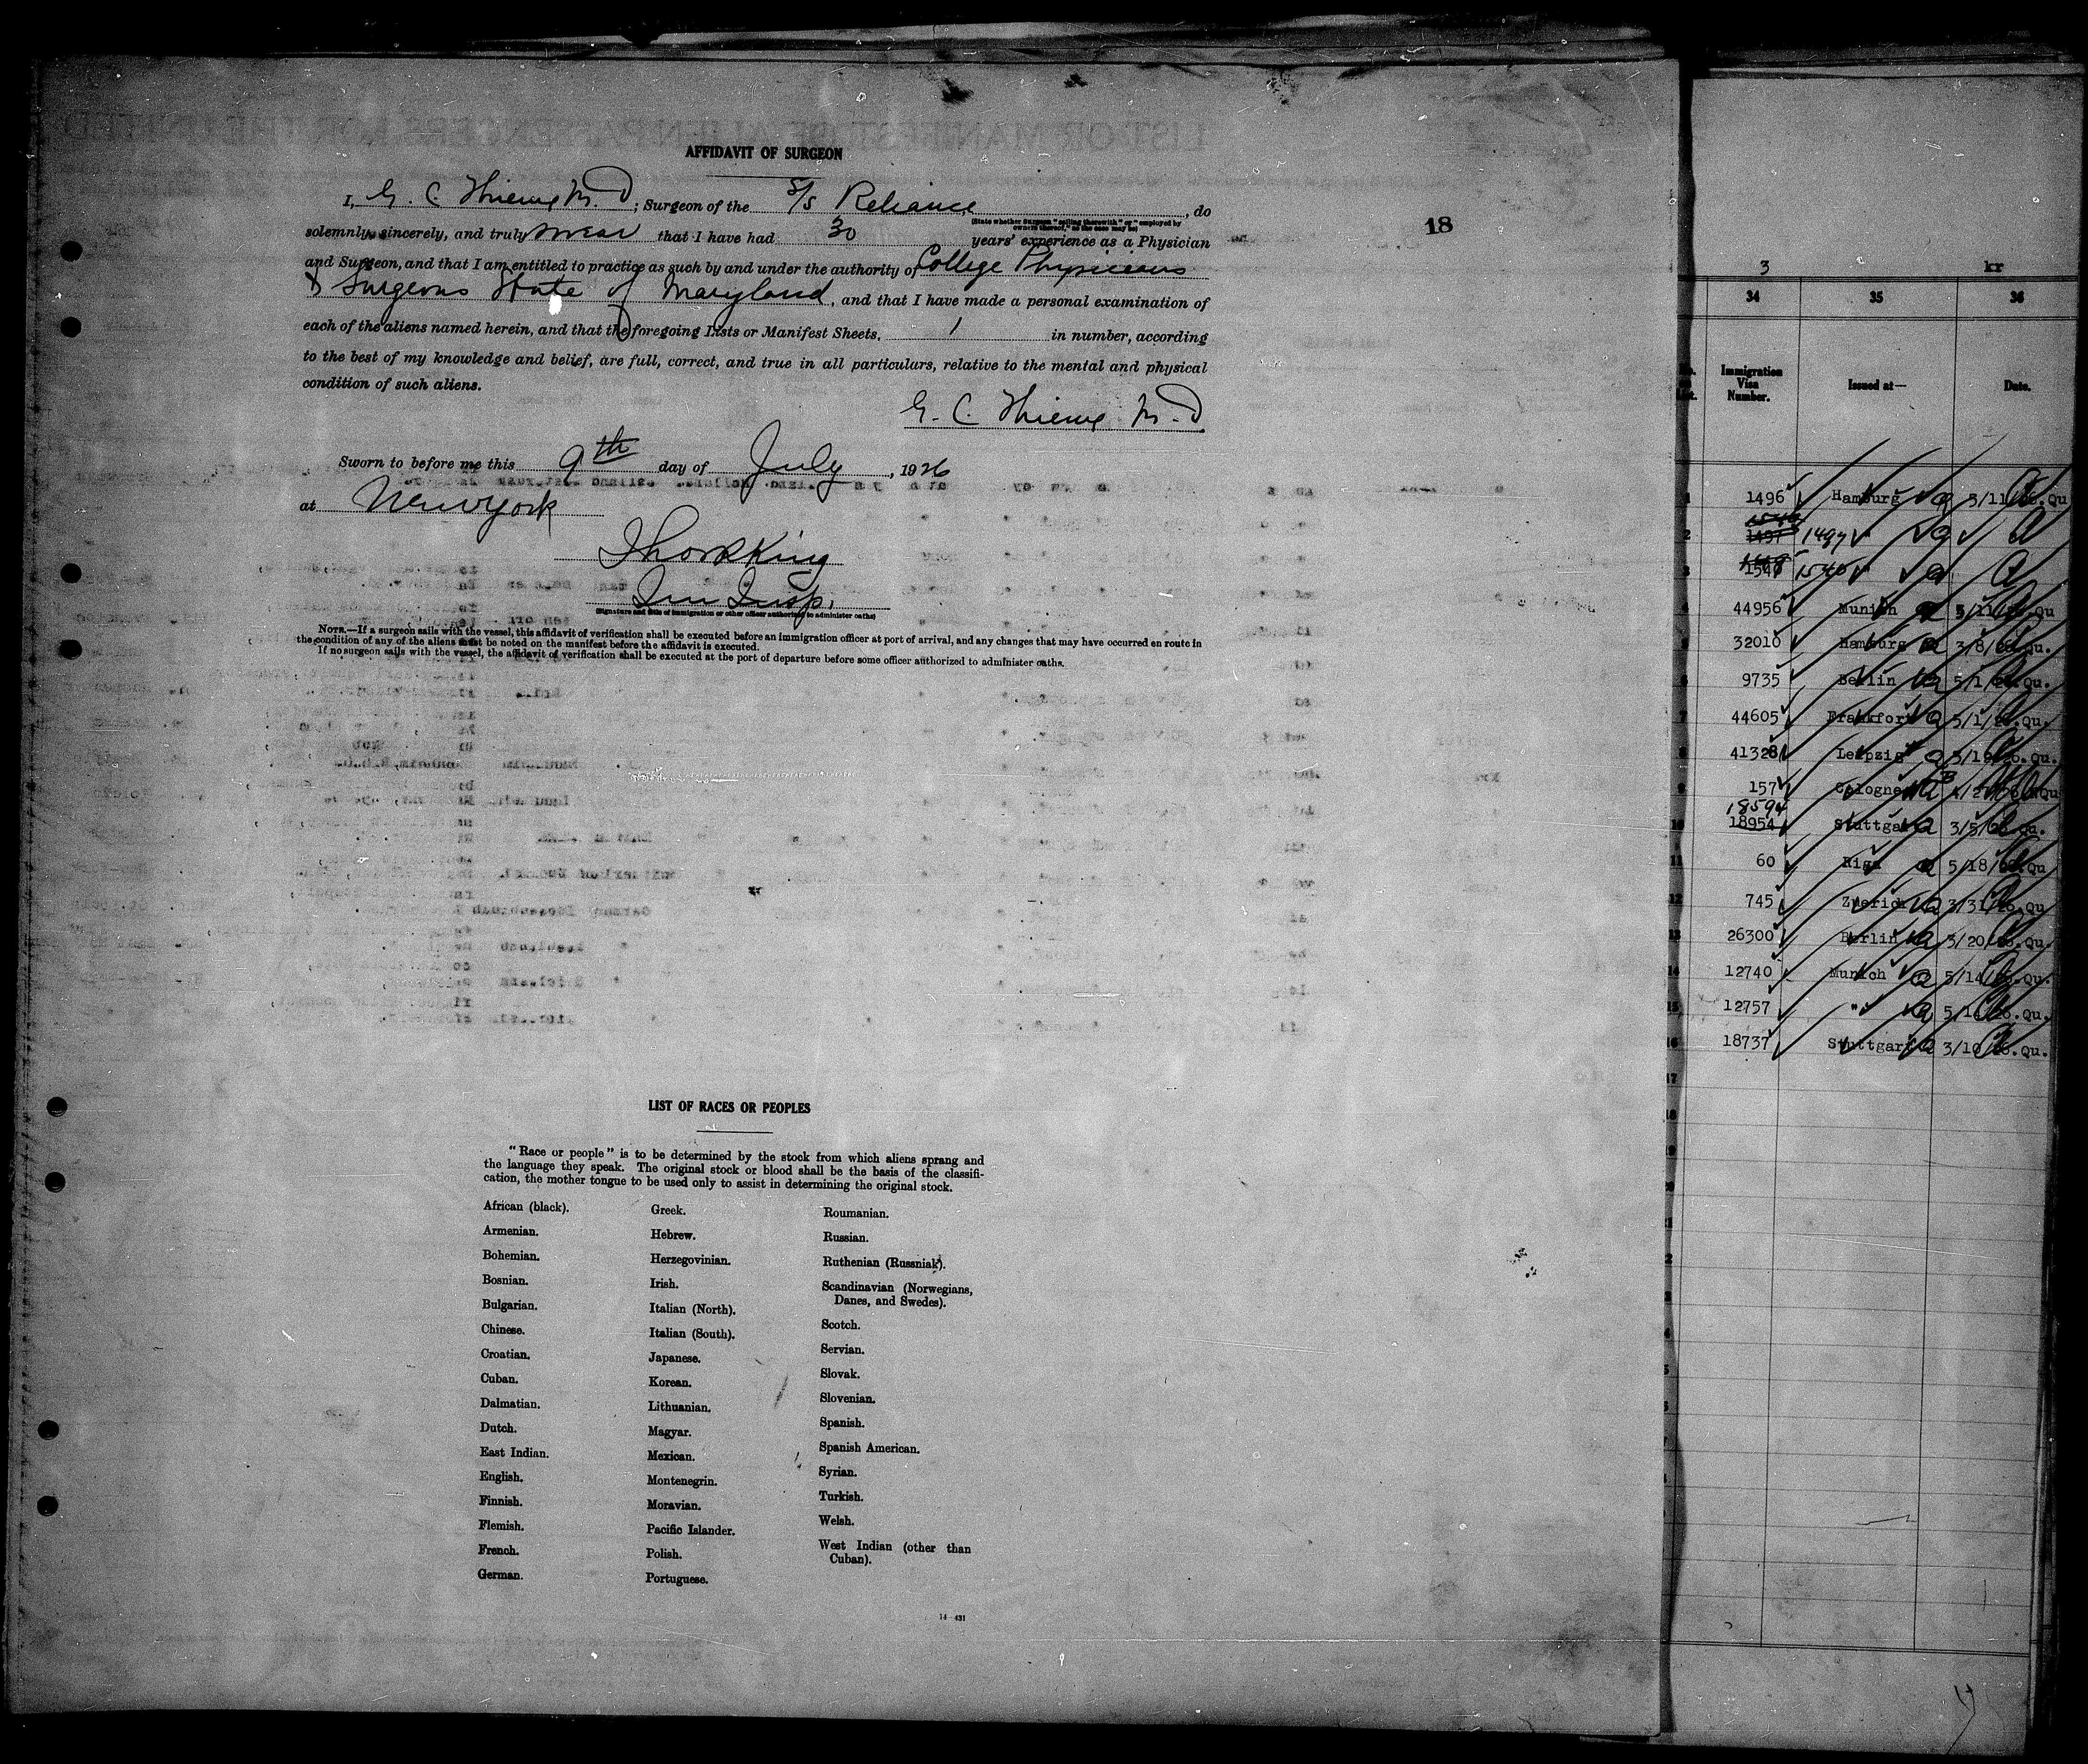 AFFIDAVIT OF SURGEON
I, G. C. Thieme M.D; Surgeon of the S/S Reliance, do
(State whether Surgeon "sailing therewith" or "employed by owners thereof," as the case may be)
solemnly, sincerely, and truly swear that I have had 30 years' experience as a Physician
and Surgeon, and that I am entitled to practice as such by and under the authority of College Physicians
& Surgeons State of Maryland, and that I have made a personal examination of
each of the aliens named herein, and that the foregoing Lists or Manifest Sheets, 1 in number, according
to the best of my knowledge and belief, are full, correct, and true in all particulars, relative to the mental and physical
condition of such aliens.
G. C. Thieme M.D
Sworn to before me this 9th day of July, 1926
at New York
King
Imm Insp.
(Signature and title of immigration or other officer authorized to administer oaths)
NOTE.—If a surgeon sails with the vessel, this affidavit of verification shall be executed before an immigration officer at port of arrival, and any changes that may have occurred en route in
the condition of any of the aliens must be noted on the manifest before the affidavit is executed.
If no surgeon sails with the vessel, the affidavit of verification shall be executed at the port of departure before some officer authorized to administer oaths.
18
LIST OF RACES OR PEOPLES
"Race or people" is to be determined by the stock from which aliens sprang and
the language they speak. The original stock or blood shall be the basis of the classifi-
cation, the mother tongue to be used only to assist in determining the original stock.
African (black).
Armenian.
Bohemian.
Bosnian.
Bulgarian.
Chinese.
Croatian.
Cuban.
Dalmatian.
Dutch.
East Indian.
English.
Finnish.
Flemish.
French.
German.
Greek.
Hebrew.
Herzegovinian.
Irish.
Italian (North).
Italian (South).
Japanese.
Korean.
Lithuanian.
Magyar.
Mexican.
Montenegrin.
Moravian.
Pacific Islander.
Polish.
Portuguese.
Roumanian.
Russian.
Ruthenian (Russniak).
Scandinavian (Norwegians,
Danes, and Swedes).
Scotch.
Servian.
Slovak.
Slovenian.
Spanish.
Spanish American.
Syrian.
Turkish.
Welsh.
West Indian (other than
Cuban).
14—431
3 kr
34 35 36
Immigration Visa Number. Issued at— Date.
1 1496 Hamburg 5/11/26.Qu
2 1497 1497
3 1540
4 44956 Munich 5/11/26.Qu
5 32010 Hamburg 3/8/26.Qu.
6 9735 Berlin 5/1/26.Qu.
7 44605 Frankfort 5/1/26.Qu.
8 41328 Leipzig
9 157 Cologne
18594
10 18954 Stuttgart 3/5/26.Qu.
11 60 Riga 5/18/26.Qu
12 745 Zuerich 3/31/26.Qu
13 26300 Berlin 3/20/26.Qu.
14 12740 Munich 5/14/26.Qu.
15 12757 " 5/14/26.Qu.
16 18737 Stuttgart 3/10/26.Qu.
17